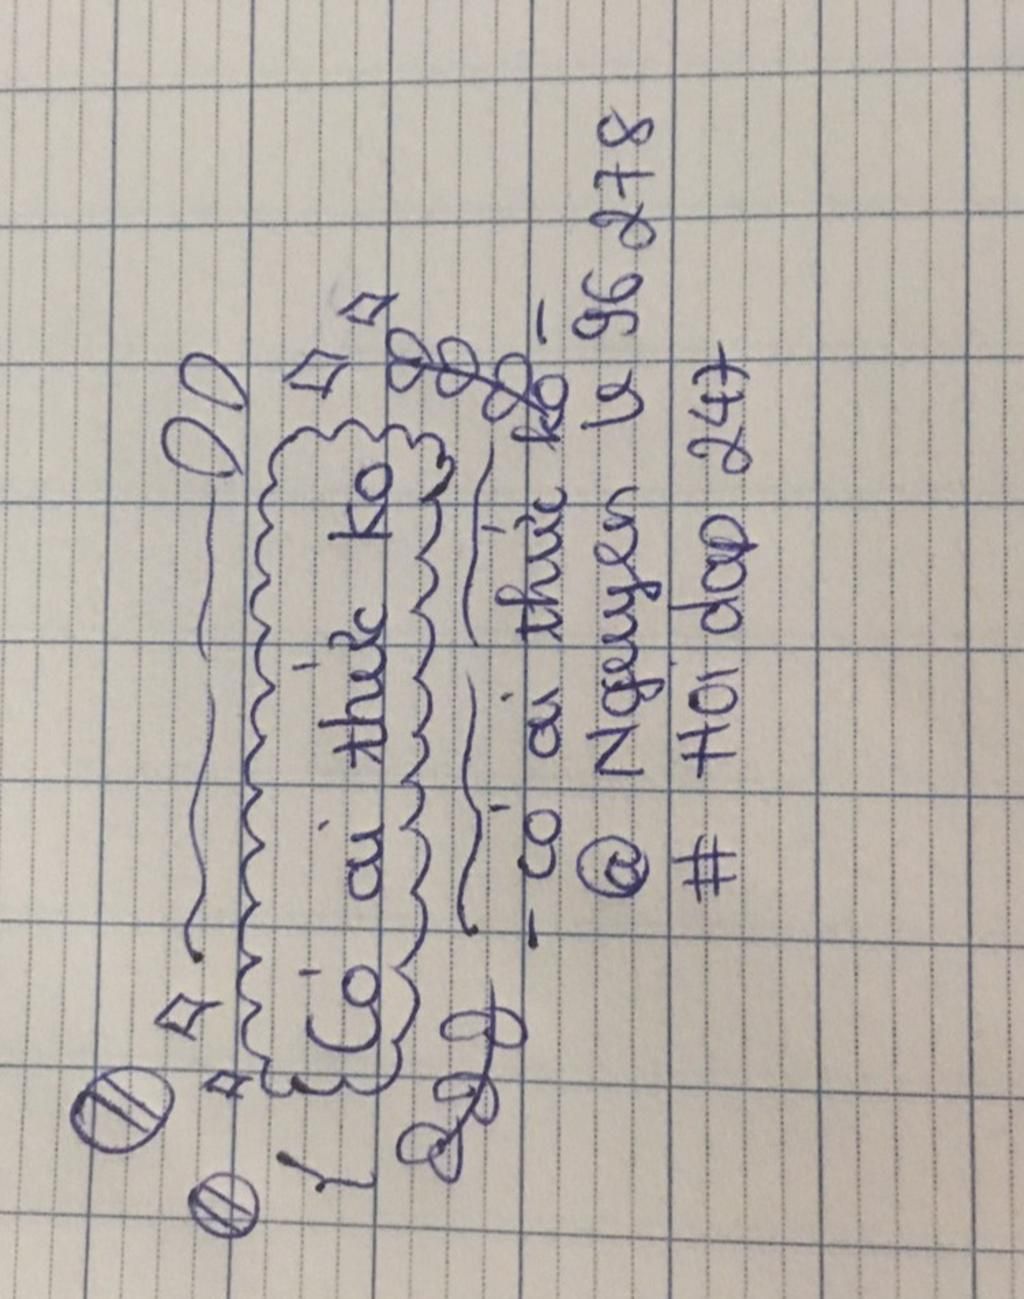 Có ai thức ko
- có ai thức ko -
@ Nguyen le 96 278
# Hoi dap 247